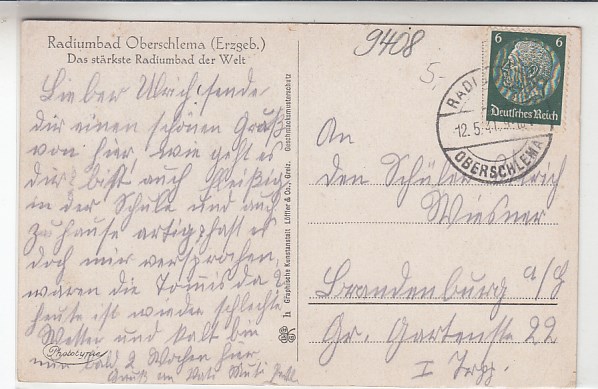 Radiumbad Oberschlema (Erzgeb.)
Das stärkste Radiumbad der Welt
Lieber Ulrich! sende
dir einen schönen Gruß
von hier, wie geht es
dir? bist auch fleißig
in der Schule und auch
zu hause artig, hast es
doch mir versprochen,
waren die Tomis da?
heute ist wieder schlechtes
Wetter und kalt bin
nun bald 2 Wochen hier
Gruß an Vati Muti
Phototypie
Ia Graphische Kunstanstalt Löffler & Co., Greiz. Geschmacksmusterschutz
9408
5.-
6 6
Deutsches Reich
RADI
12.5.41
OBERSCHLEMA
An
den Schüler Ulrich
Wiesner
Brandenburg a/H
Gr. Gartenstr 22
I Trp.